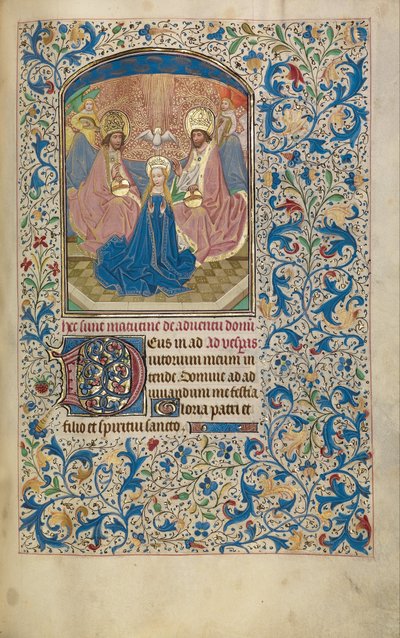 hec sunt matutine de aduentu domi
Deus in ad Ad vesp[er]as
iutorium meum in
tende. Domine ad ad
iuuandum me festia
Gloria patri et
filio et spiritui sancto.